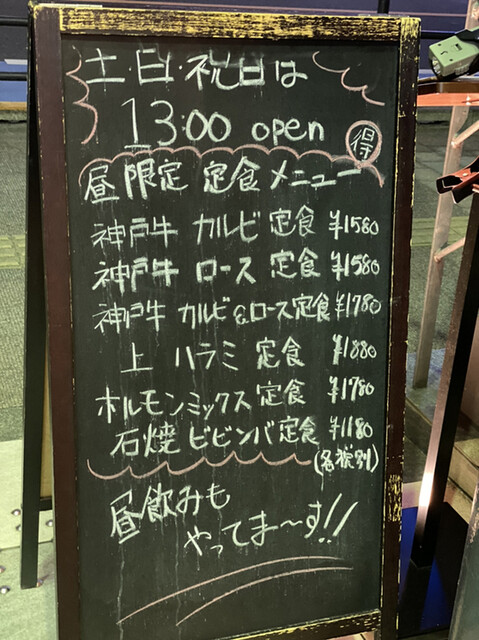 土・日・祝日は
13:00 open
得
昼限定 定食メニュー
神戸牛 カルビ 定食 ¥1580
神戸牛 ロース 定食 ¥1580
神戸牛 カルビ&ロース定食 ¥1780
上 ハラミ 定食 ¥1880
ホルモンミックス 定食 ¥1780
石焼 ビビンバ 定食 ¥1180
(各税別)
昼飲みも
やってま〜す!!